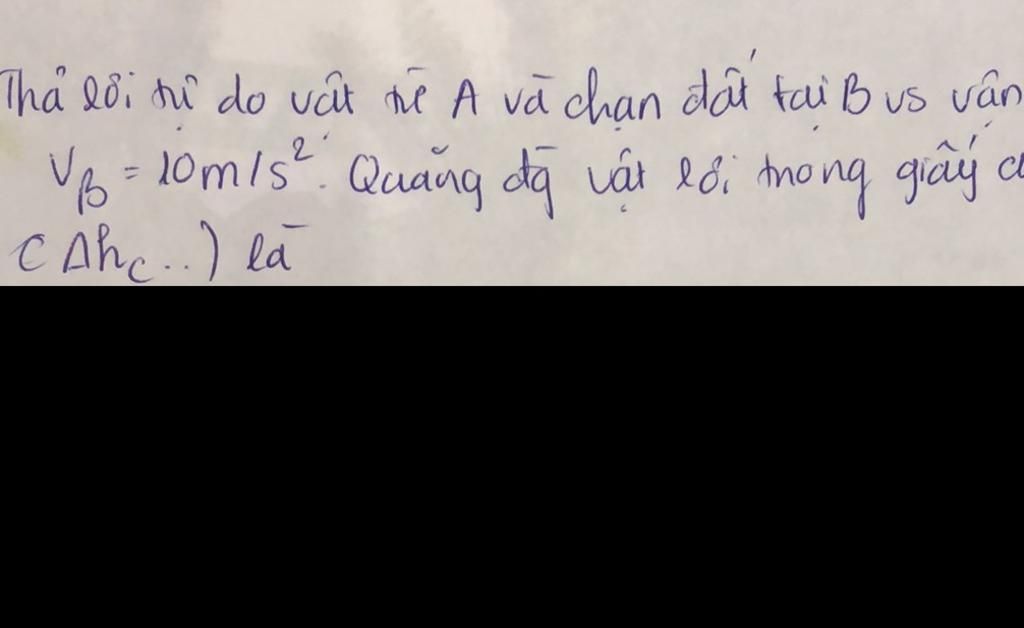 Thả rơi tự do vật từ A và chạm đất tại B vs vận
VB = 10m/s². Quãng đg vật rơi trong giây c
(Δhc..) là